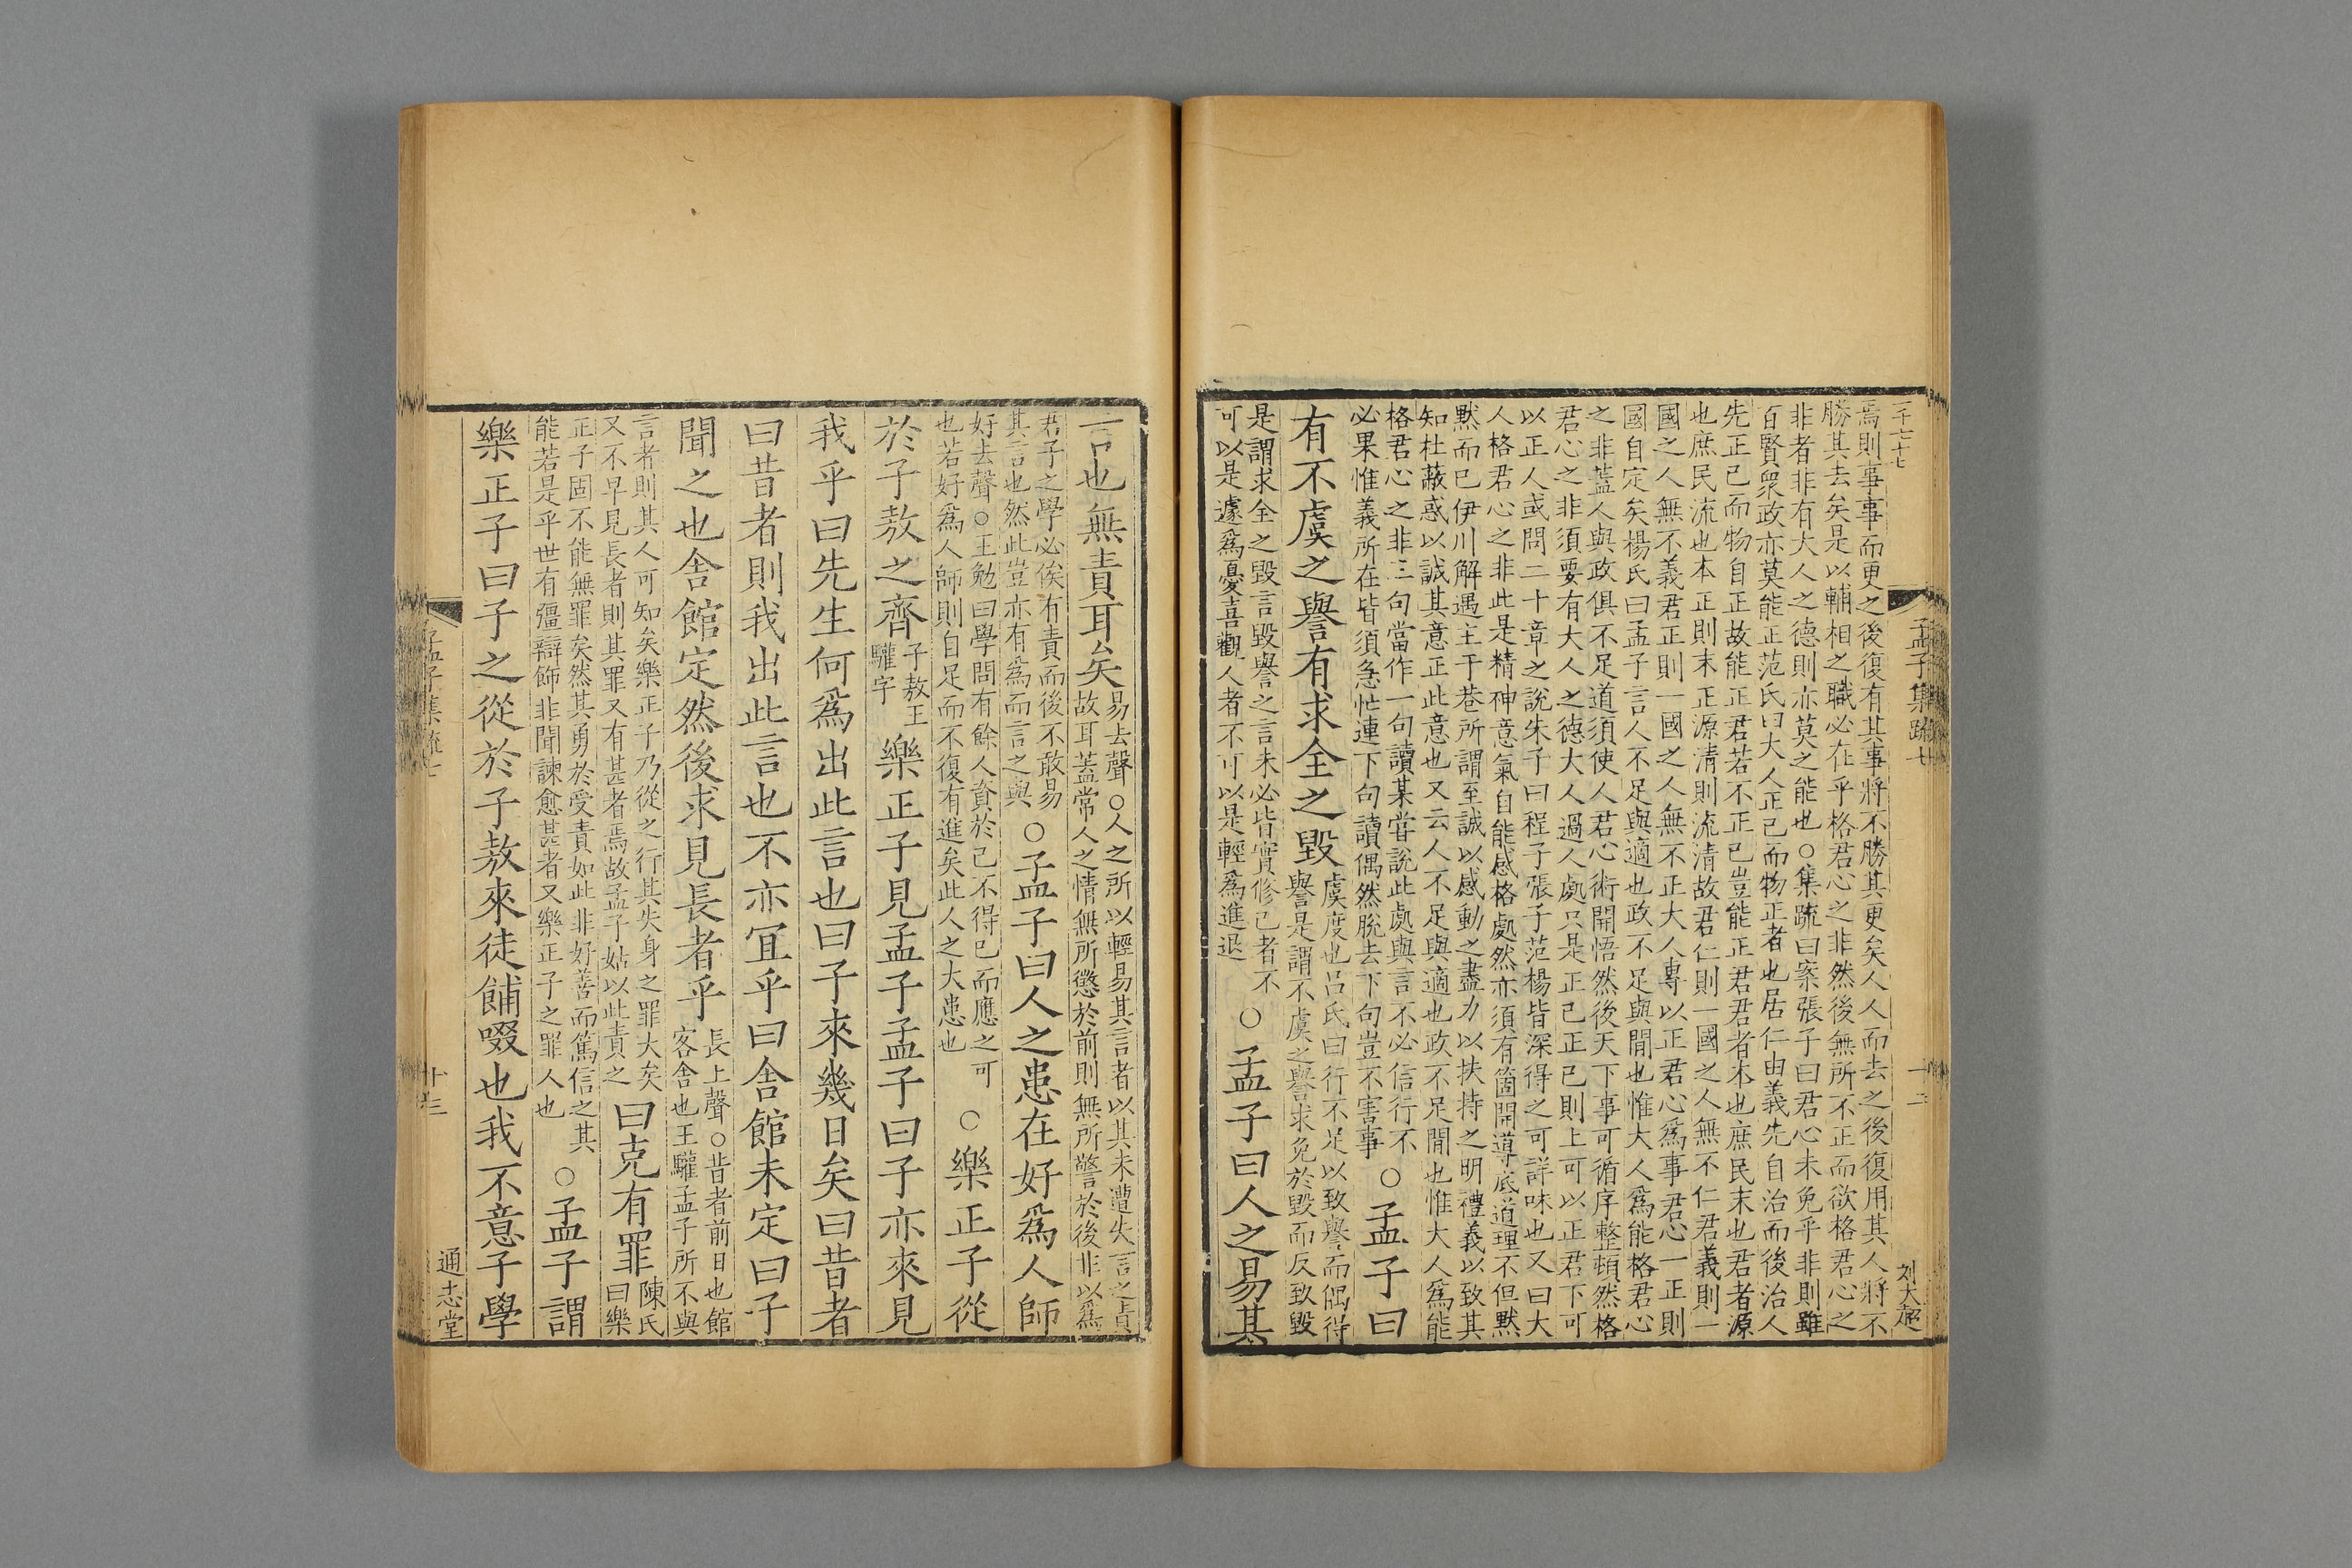 孟子集疏七
刘大超
焉則事事而更之後復有其事將不勝其更矣人人而去之後復用其人將不
勝其去矣是以輔相之職必在乎格君心之非然後無所不正而欲格君心之
非者非有大人之德則亦莫之能也○集疏曰案張子曰君心未免乎非則雖
百賢衆政亦莫能正范氏曰大人正己而物正者也居仁由義先自治而後治人
先正己而物自正故能正君若不正己豈能正君君者本也庶民末也君者源
也庶民流也本正則末正源清則流清故君仁則一國之人無不仁君義則一
國之人無不義君正則一國之人無不正大人專以正君心爲事君心一正則
國自定矣楊氏曰孟子言人不足與適也政不足與閒也惟大人爲能格君心
之非蓋人與政俱不足道須使人君心術開悟然後天下事可循序整頓然格
君心之非須要有大人之德大人過人處只是正己正己則上可以正君下可
以正人或問二十章之說朱子曰程子張子范楊皆深得之可詳味也又曰大
人格君心之非此是精神意氣自能感格處然亦須有箇開導底道理不但默
默而已伊川解遇主于巷所謂至誠以感動之盡力以扶持之明禮義以致其
知杜蔽惑以誠其意正此意也又云人不足與適也政不足閒也惟大人爲能
格君心之非三句當作一句讀某嘗說此處與言不必信行不
必果惟義所在皆須急忙連下句讀偶然脫去下句豈不害事
○孟子曰
有不虞之譽有求全之毀
虞度也呂氏曰行不足以致譽而偶得
譽是謂不虞之譽求免於毀而反致毀
是謂求全之毀言毀譽之言未必皆實修己者不
可以是遽爲憂喜觀人者不可以是輕爲進退
○孟子曰人之易其
言也無責耳矣
易去聲○人之所以輕易其言者以其未遭失言之責
故耳蓋常人之情無所懲於前則無所警於後非以爲
君子之學必俟有責而後不敢易
其言也然此豈亦有爲而言之與
○孟子曰人之患在好爲人師
好去聲○王勉曰學問有餘人資於己不得已而應之可
也若好爲人師則自足而不復有進矣此人之大患也
○樂正子從
於子敖之齊
子敖王
驩字
樂正子見孟子孟子曰子亦來見
我乎曰先生何爲出此言也曰子來幾日矣曰昔者
曰昔者則我出此言也不亦冝乎曰舍館未定曰子
聞之也舍館定然後求見長者乎
長上聲○昔者前日也館
客舍也王驩孟子所不與
言者則其人可知矣樂正子乃從之行其失身之罪大矣
又不早見長者則其罪又有甚者焉故孟子姑以此責之
曰克有罪
陳氏
曰樂
正子固不能無罪矣然其勇於受責如此非好善而篤信之其
能若是乎世有彊辯飾非聞諫愈甚者又樂正子之罪人也
○孟子謂
樂正子曰子之從於子敖來徒餔啜也我不意子學
孟子集疏七
十三
通志堂